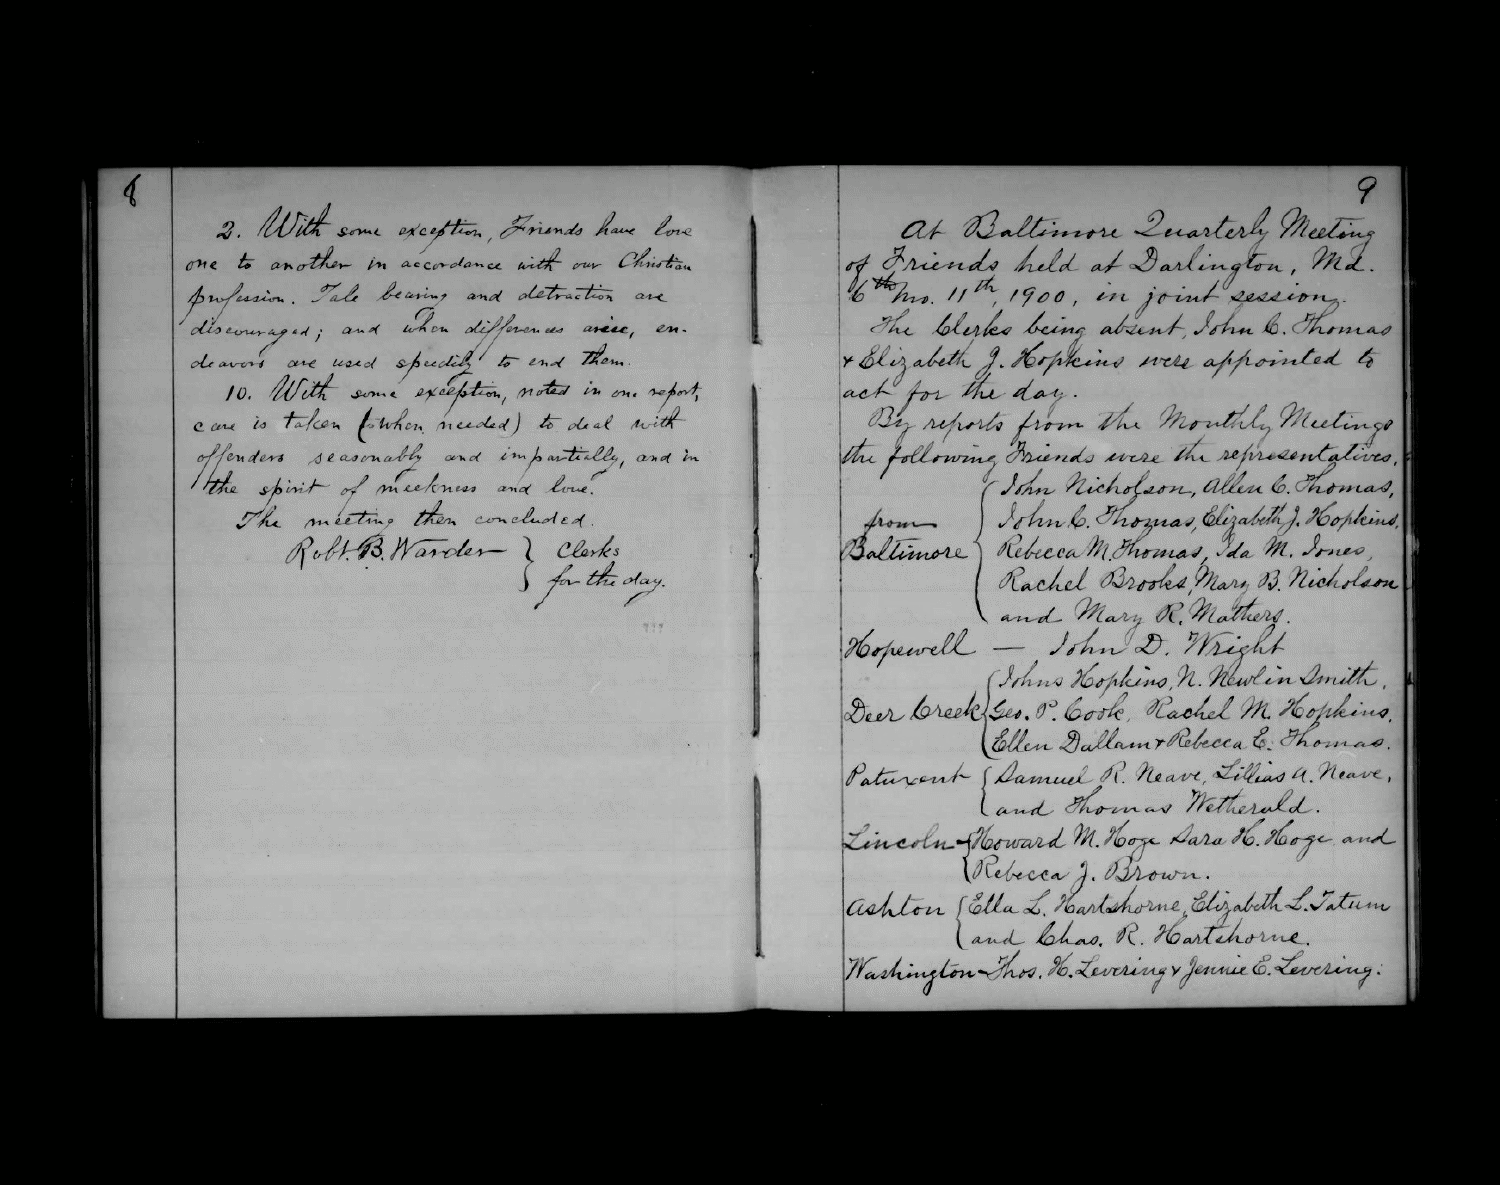 8
2. With some exception, Friends have love
one to another in accordance with our Christian
profession. Tale bearing and detraction are
discouraged; and when differences arise, en-
deavors are used speedily to end them.
10. With some exception, noted in one report,
care is taken (when needed) to deal with
offenders seasonably and impartially, and in
the spirit of meekness and love.
The meeting then concluded.
Robt. B. Warder } Clerks
for the day.
9
At Baltimore Quarterly Meeting
of Friends held at Darlington, Md.
6th mo. 11th, 1900, in joint session.
The Clerks being absent, John C. Thomas
& Elizabeth J. Hopkins were appointed to
act for the day.
By reports from the Monthly Meetings
the following Friends were the representatives.
John Nicholson, Allen C. Thomas,
from
John C. Thomas, Elizabeth J. Hopkins,
Baltimore
Rebecca M. Thomas, Ida M. Jones,
Rachel Brooks, Mary B. Nicholson
and Mary R. Mathers.
Hopewell — John D. Wright
Johns Hopkins, N. Newlin Smith,
Deer Creek Geo. P. Cook, Rachel M. Hopkins,
Ellen Dallam & Rebecca E. Thomas.
Patuxent { Samuel R. Neave, Lillias A. Neave,
and Thomas Wetherald.
Lincoln - { Howard M. Hoge Sara H. Hoge and
Rebecca J. Brown.
Ashton { Ella L. Hartshorne, Elizabeth L. Tatum
and Chas. R. Hartshorne.
Washington - Thos. H. Levering & Jennie E. Levering.